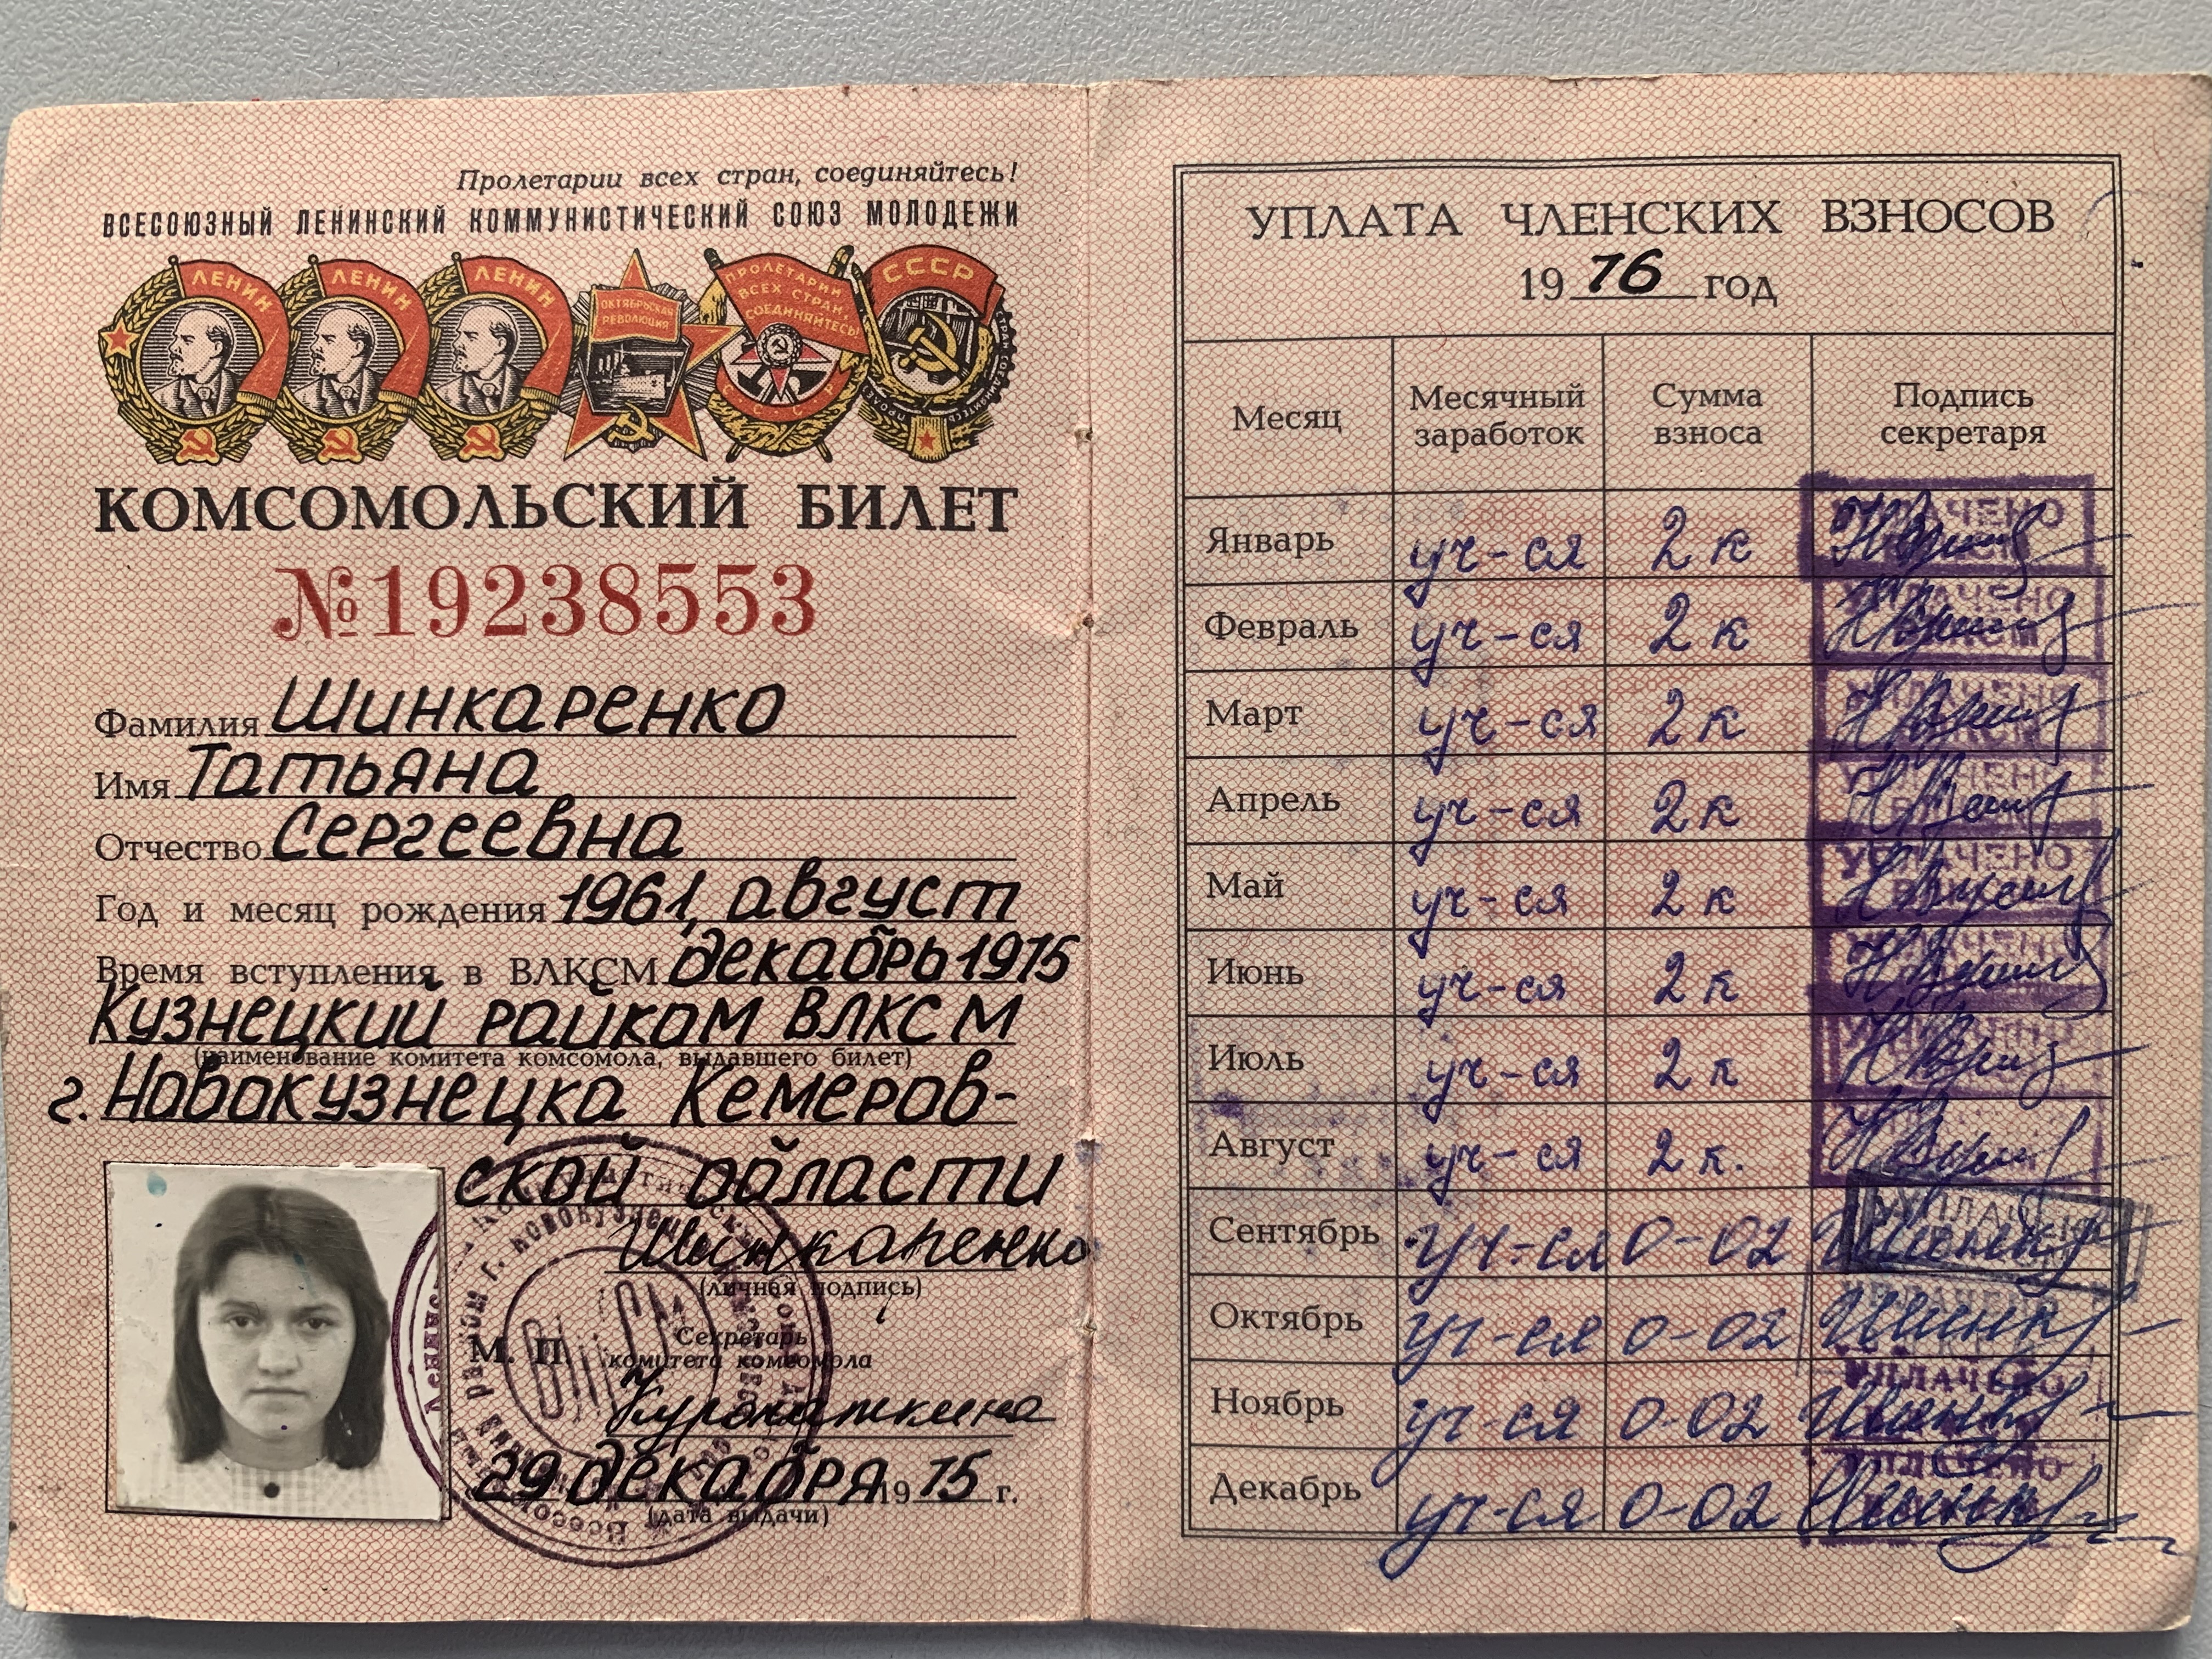 Пролетарии всех стран, соединяйтесь!
ВСЕСОЮЗНЫЙ ЛЕНИНСКИЙ КОММУНИСТИЧЕСКИЙ СОЮЗ МОЛОДЕЖИ
ЛЕНИН
ЛЕНИН
ЛЕНИН
ОКТЯБРЬСКАЯ
РЕВОЛЮЦИЯ
ПРОЛЕТАРИИ
ВСЕХ СТРАН,
СОЕДИНЯЙТЕСЬ!
СССР
КОМСОМОЛЬСКИЙ БИЛЕТ
№19238553
Фамилия Шинкаренко
Имя Татьяна
Отчество Сергеевна
Год и месяц рождения 1961, август
Время вступления в ВЛКСМ декабрь 1975
Кузнецкий райком ВЛКСМ
(наименование комитета комсомола, выдавшего билет)
г. Новокузнецка Кемеров-
ской области
Шинкаренко
(личная подпись)
М. П.
Секретарь
комитета комсомола
29 декабря 1975 г.
(дата выдачи)
УПЛАТА ЧЛЕНСКИХ ВЗНОСОВ
1976 год
Месяц Месячный заработок Сумма взноса Подпись секретаря
Январь уч-ся 2 к УПЛАЧЕНО
Февраль уч-ся 2 к УПЛАЧЕНО
Март уч-ся 2 к УПЛАЧЕНО
Апрель уч-ся 2 к УПЛАЧЕНО
Май уч-ся 2 к УПЛАЧЕНО
Июнь уч-ся 2 к УПЛАЧЕНО
Июль уч-ся 2 к УПЛАЧЕНО
Август уч-ся 2 к.
Сентябрь уч-ся 0-02 УПЛАЧЕНО
Октябрь уч-ся 0-02 УПЛАЧЕНО
Ноябрь уч-ся 0-02 УПЛАЧЕНО
Декабрь уч-ся 0-02 УПЛАЧЕНО